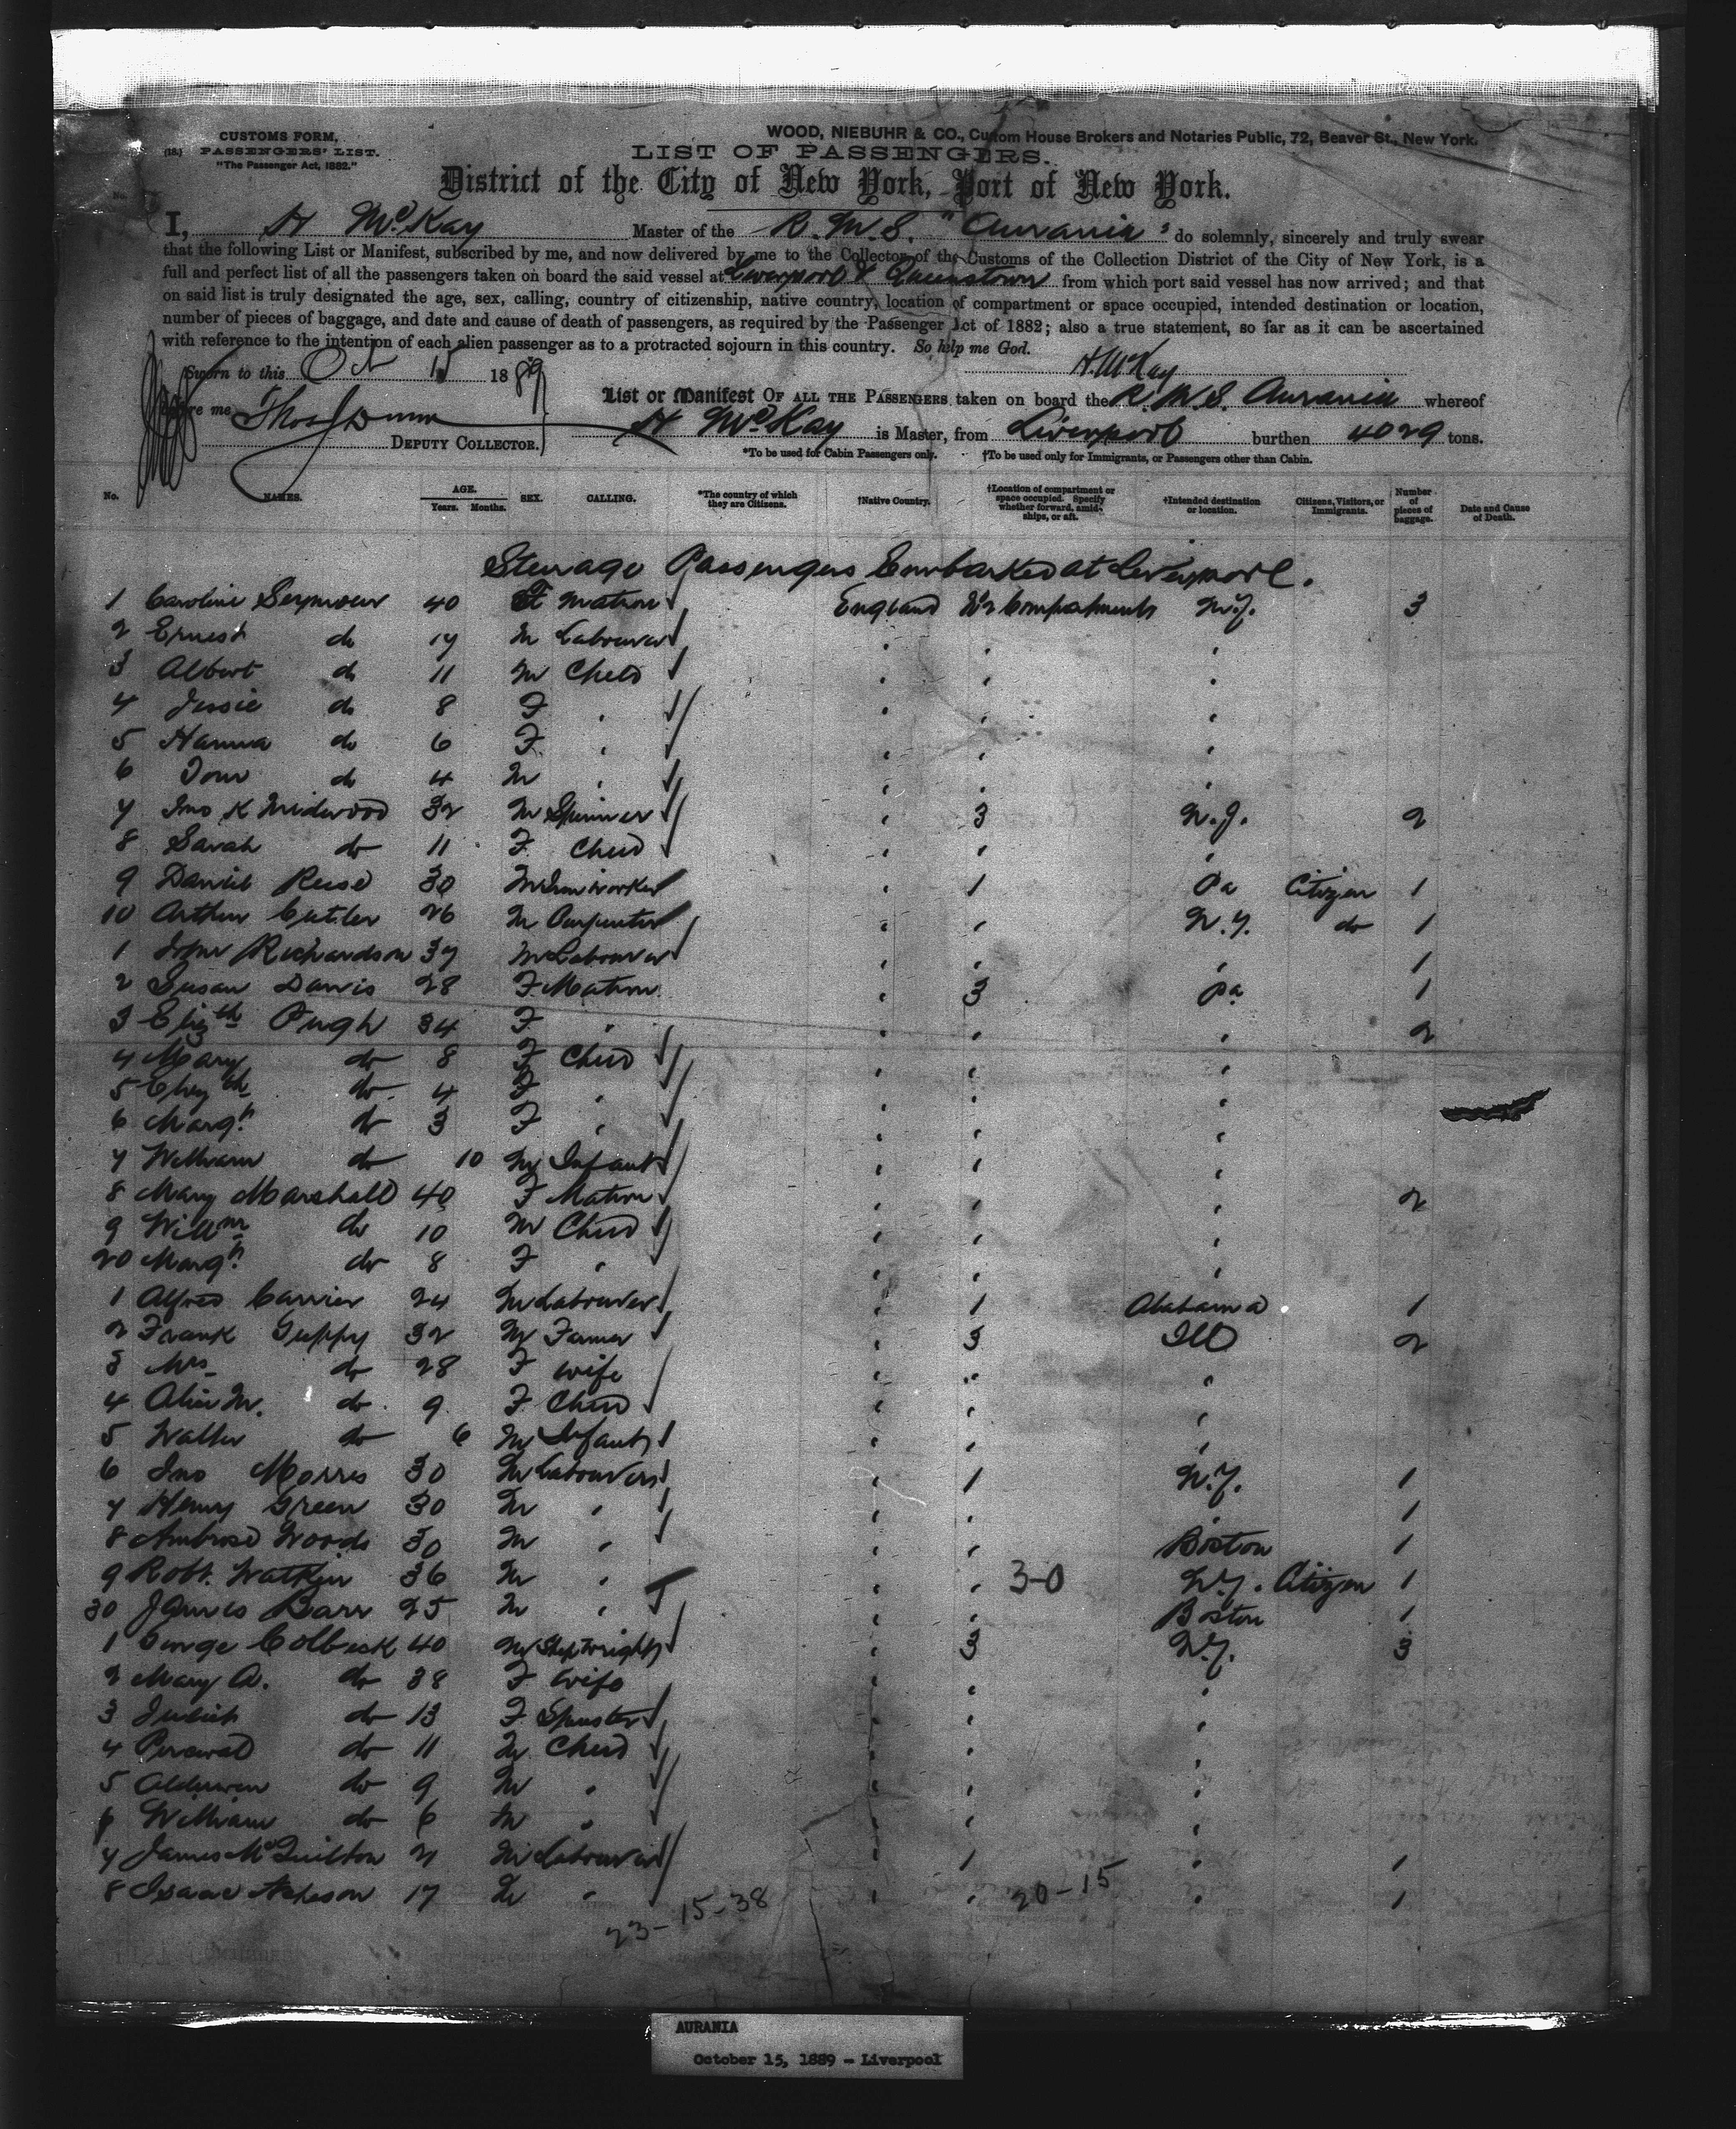 CUSTOMS FORM,
(18.) PASSENGERS' LIST.
"The Passenger Act, 1882."
WOOD, NIEBUHR & CO., Custom House Brokers and Notaries Public, 72, Beaver St., New York.
LIST OF PASSENGERS.
District of the City of New York, Port of New York.
I, H McKay Master of the R.M.S. "Aurania" do solemnly, sincerely and truly swear
that the following List or Manifest, subscribed by me, and now delivered by me to the Collector of the Customs of the Collection District of the City of New York, is a
full and perfect list of all the passengers taken on board the said vessel at Liverpool & Queenstown from which port said vessel has now arrived; and that
on said list is truly designated the age, sex, calling, country of citizenship, native country, location of compartment or space occupied, intended destination or location,
number of pieces of baggage, and date and cause of death of passengers, as required by the Passenger Act of 1882; also a true statement, so far as it can be ascertained
with reference to the intention of each alien passenger as to a protracted sojourn in this country. So help me God.
Sworn to this Oct 15 1889 H McKay
before me Thos Dunn
DEPUTY COLLECTOR.
List or Manifest OF ALL THE PASSENGERS taken on board the R.M.S. Aurania whereof
H McKay is Master, from Liverpool burthen 4029 tons.
*To be used for Cabin Passengers only. †To be used only for Immigrants, or Passengers other than Cabin.
No. NAMES. AGE. Years. Months. SEX. CALLING. *The country of which they are Citizens. †Native Country. †Location of compartment or space occupied. Specify whether forward, amidships, or aft. †Intended destination or location. Citizens, Visitors, or Immigrants. Number of pieces of baggage. Date and Cause of Death.
Steerage Passengers Embarked at Liverpool.
1 Caroline Seymour 40 F Matron England Compartment N.Y. 3
2 Ernest do 17 M Labourer
3 Albert do 11 M Child
4 Jessie do 8 F "
5 Hanna do 6 F "
6 Tom do 4 M "
7 Jno K Midwood 32 M Spinner " 3 N.J. 2
8 Sarah do 11 F Child
9 Daniel Reese 30 M Ironworker " 1 Pa Citizen 1
10 Arthur Cutler 26 M Carpenter " " N.Y. do 1
1 John Richardson 37 M Labourer " " " 1
2 Susan Davis 28 F Matron " 3 Pa 1
3 Elizth Pugh 34 F " " " " 2
4 Mary do 8 F Child
5 Elizth do 4 F "
6 Margt do 3 F "
7 William do 10 M Infant
8 Mary Marshall 40 F Matron " " " 2
9 Willm do 10 M Child
20 Margt do 8 F "
1 Alfred Carrier 24 M Labourer " 1 Alabama 1
2 Frank Guppy 32 M Farmer " 3 Ill 2
3 Mrs do 28 F Wife
4 Alice M. do 9 F Child
5 Walter do 6 M Infant
6 Jno Morris 30 M Labourers " 1 N.Y. 1
7 Henry Green 30 M " " " " 1
8 Ambrose Woods 30 M " " " Boston 1
9 Robt. Watkin 36 M " " " 3-0 N.Y. Citizen 1
30 James Barr 25 M " " " Boston 1
1 George Colbeck 40 M Shipwright " 3 N.Y. 3
2 Mary A. do 38 F Wife
3 do 13 F Spinster
4 Percival do 11 M Child
5 do 9 M "
6 William do 6 M "
7 James McQuilton 21 M Labourer " 1 " 1
8 Isaac Acheson 17 M " " " " 1
23-15-38 20-15
AURANIA
October 15, 1889 - Liverpool